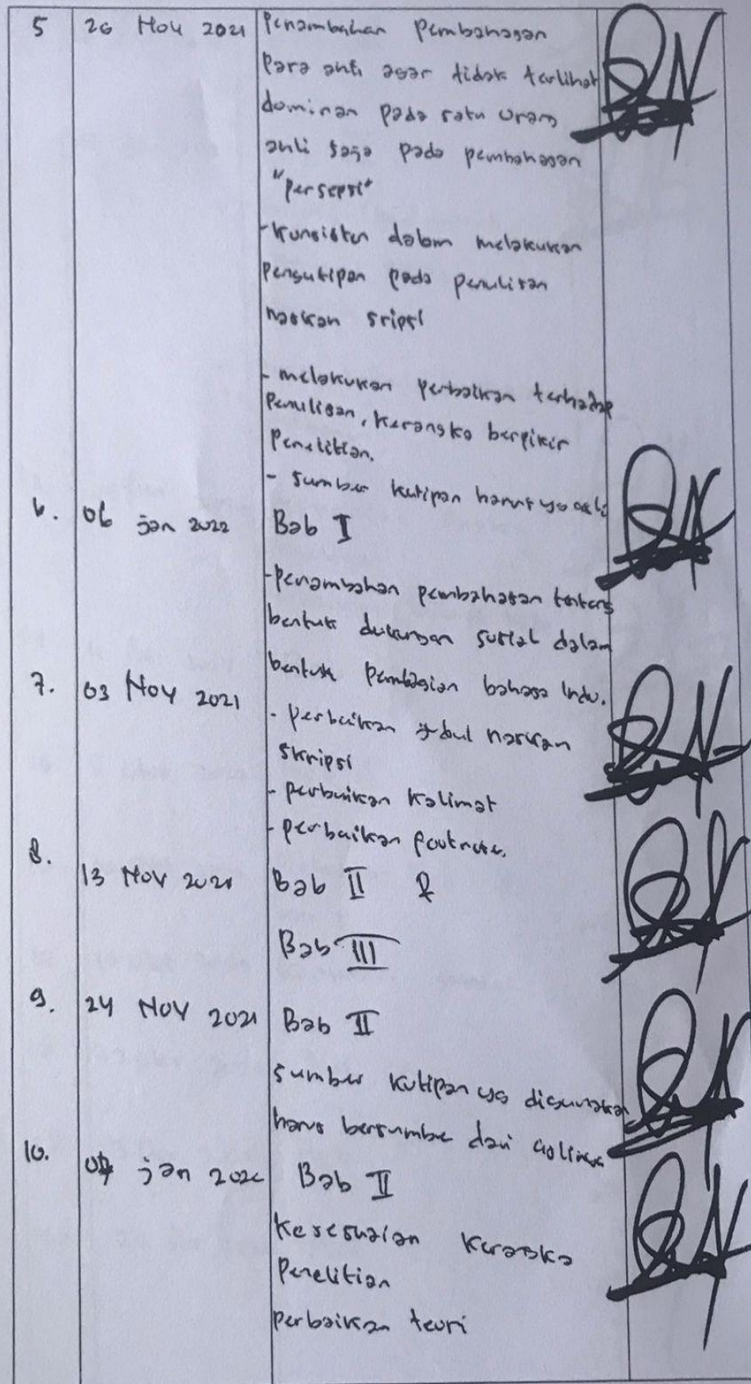 5 26 Nov 2021 Penambahan Pembahasan
Para ahli agar tidak terlihat
dominan pada satu orang
ahli saja pada pembahasan
"Persepsi"
-Konsisten dalam melakukan
Pengutipan pada penulisan
naskah sripsi
- melakukan perbaikan terhadap
Penulisan, Kerangka berpikir
Penelitian.
- Sumber kutipan harus yg asli
6. 06 jan 2022 Bab I
-Penambahan pembahasan tentang
bentuk dukungan sosial dalam
bentuk Pembagian bahasa Indo.
7. 03 Nov 2021
- perbaikan judul naskah
skripsi
- perbaikan Kalimat
- perbaikan footnote.
8. 13 Nov 2021 Bab II &
Bab III
9. 24 Nov 2021 Bab II
Sumber kutipan yg digunakan
harus bersumbe dari aslinya
10. jan 2022 Bab II
Kesesuaian Kerangka
Penelitian
perbaikan teori